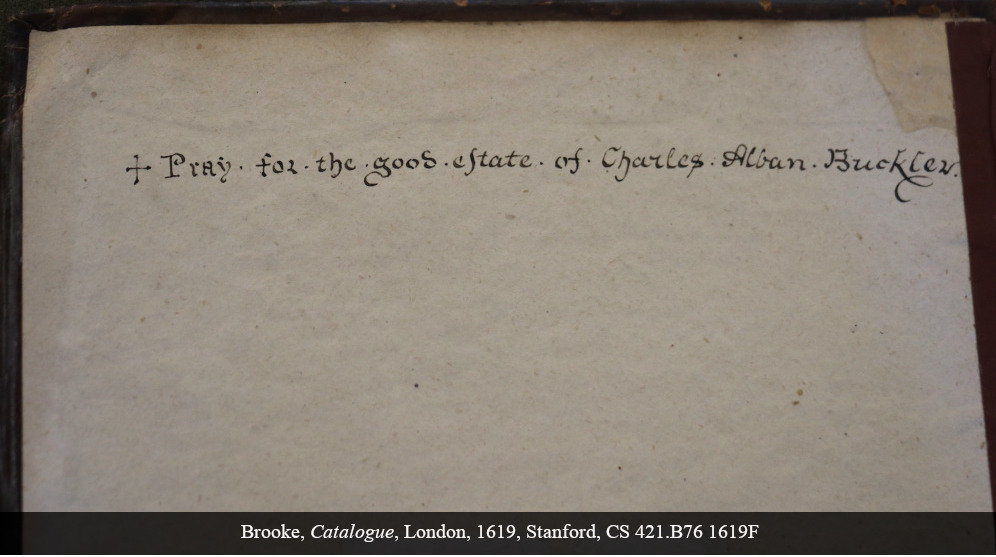 + Pray · for · the · good · eſtate · of · Charles · Alban · Buckler.
Brooke, Catalogue, London, 1619, Stanford, CS 421.B76 1619F